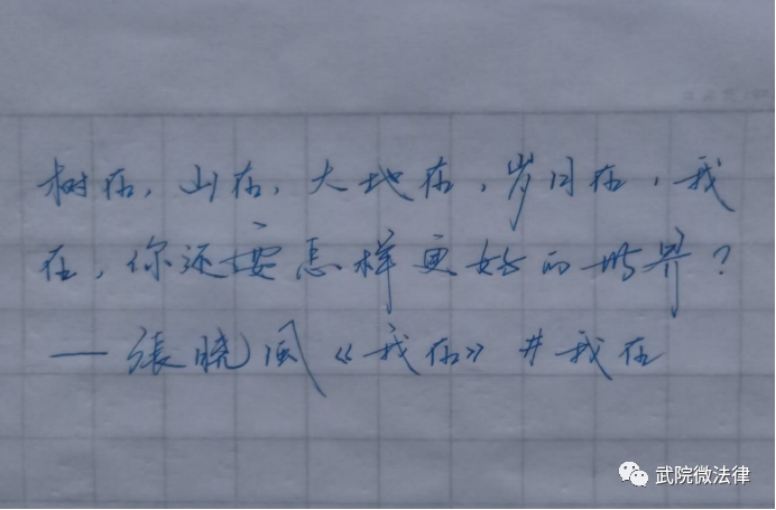 树在，山在，大地在，岁月在，我
在，你还要怎样更好的世界？
——張晓风《我在》#我在
武院微法律